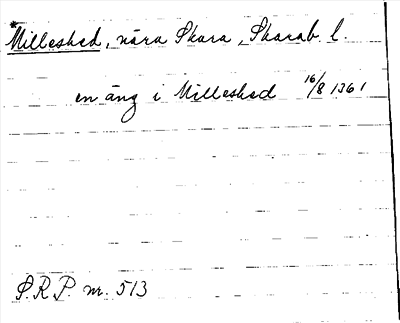 *Milleshed, nära Skara, Skarab. l.
en äng i Milleshed 16/8 1361
S.R.P. nr. 513